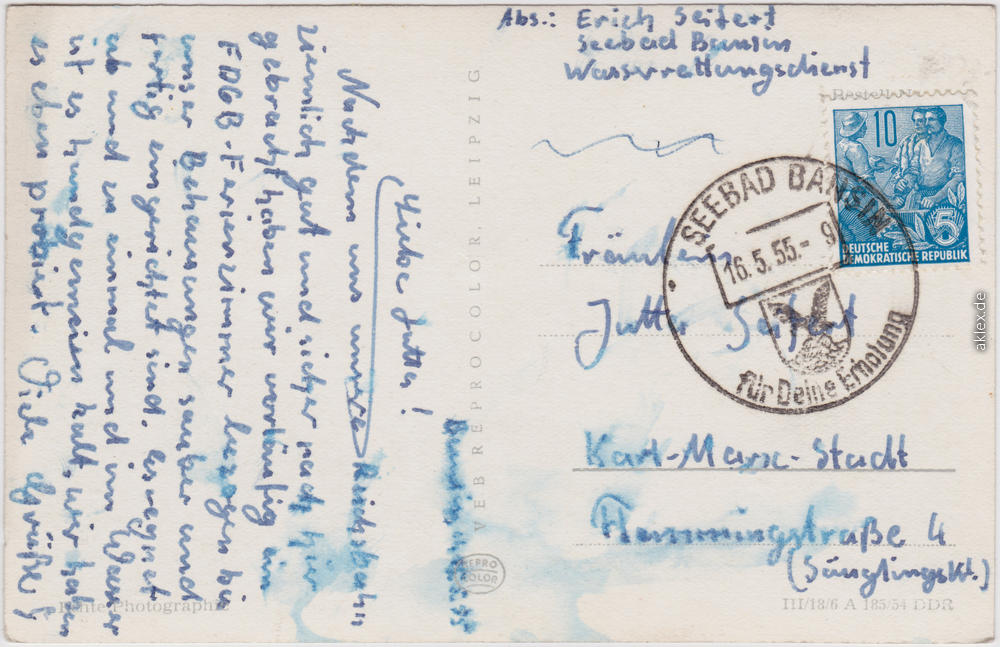 Abs.: Erich Seifert
Seebad Bansin
Wasserrettungsdienst
10
DEUTSCHE
DEMOKRATISCHE REPUBLIK
SEEBAD BANSIN
16.5.55.- 9
für Deine Erholung
Fräulein
Jutta Seifert
Karl-Marx-Stadt
Flemmingstraße 4
(Säuglingskl.)
III/18/6 A 185/54 DDR
VEB REPROCOLOR, LEIPZIG
REPRO
COLOR
Echte Photographie
Liebe Jutta!
Nachdem uns unsere
ziemlich gut und sicher nach hier
gebracht haben wir vorläufig ein
FDGB-Ferienzimmer bezogen bis
unser Behausungen sauber und
fertig eingerichtet sind. Es regnet
ab und zu einmal und im Wasser
ist es hundgemein kalt, wir haben
es eben probiert. Viele Grüße!
aklex.de